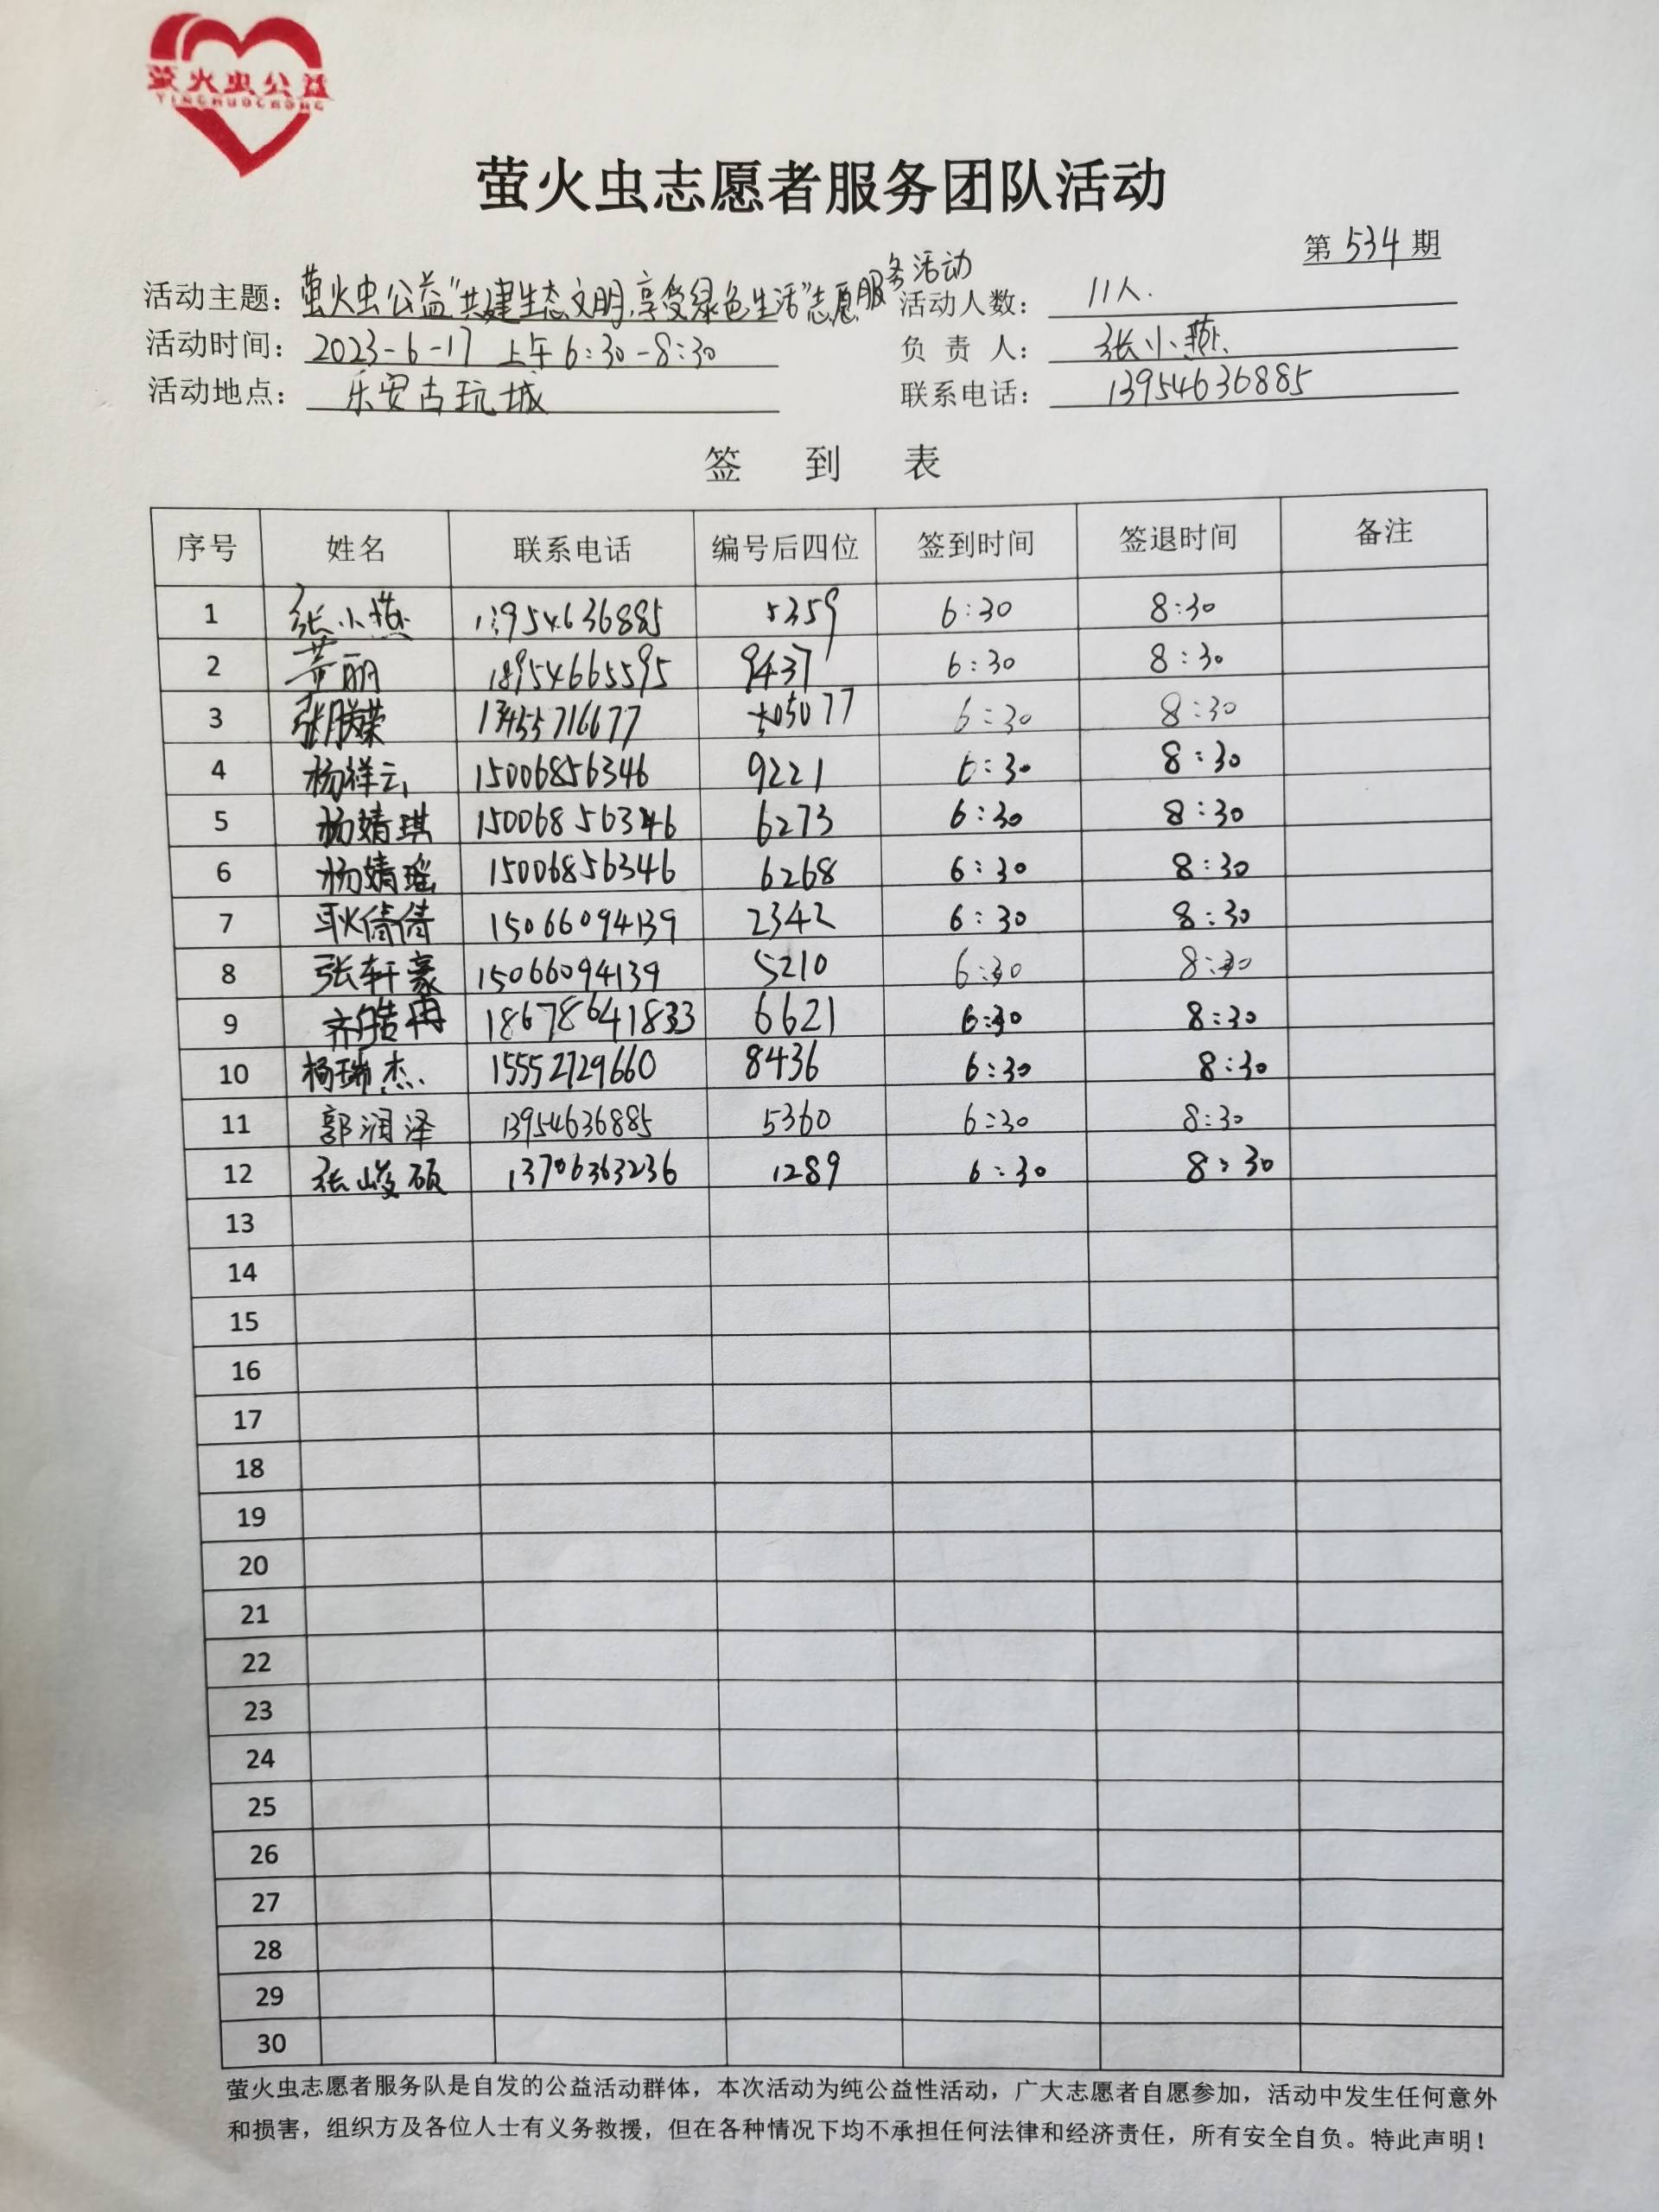 萤火虫公益
YINGHUOCHONG
萤火虫志愿者服务团队活动
第 534 期
活动主题：萤火虫公益“共建生态文明，享受绿色生活”志愿服务活动 活动人数：11人.
活动时间：2023-6-17 上午 6:30-8:30 负 责 人：张小燕
活动地点：乐安古玩城 联系电话：13954636885
签 到 表
序号 姓名 联系电话 编号后四位 签到时间 签退时间 备注
1 张小燕 13954636885 5359 6:30 8:30
2 黄丽 18954665595 9437 6:30 8:30
3 13455716677 5077 6:30 8:30
4 杨祥云 15006856346 9221 6:30 8:30
5 杨婧琪 15006856346 6273 6:30 8:30
6 杨婧瑶 15006856346 6268 6:30 8:30
7 耿倩倩 15066094139 2342 6:30 8:30
8 张轩豪 15066094139 5210 6:30 8:30
9 18678641833 6621 6:30 8:30
10 杨瑞杰 15552729660 8436 6:30 8:30
11 郭润泽 13954636885 5360 6:30 8:30
12 张峻硕 13706363236 1289 6:30 8:30
13
14
15
16
17
18
19
20
21
22
23
24
25
26
27
28
29
30
萤火虫志愿者服务队是自发的公益活动群体，本次活动为纯公益性活动，广大志愿者自愿参加，活动中发生任何意外
和损害，组织方及各位人士有义务救援，但在各种情况下均不承担任何法律和经济责任，所有安全自负。特此声明！